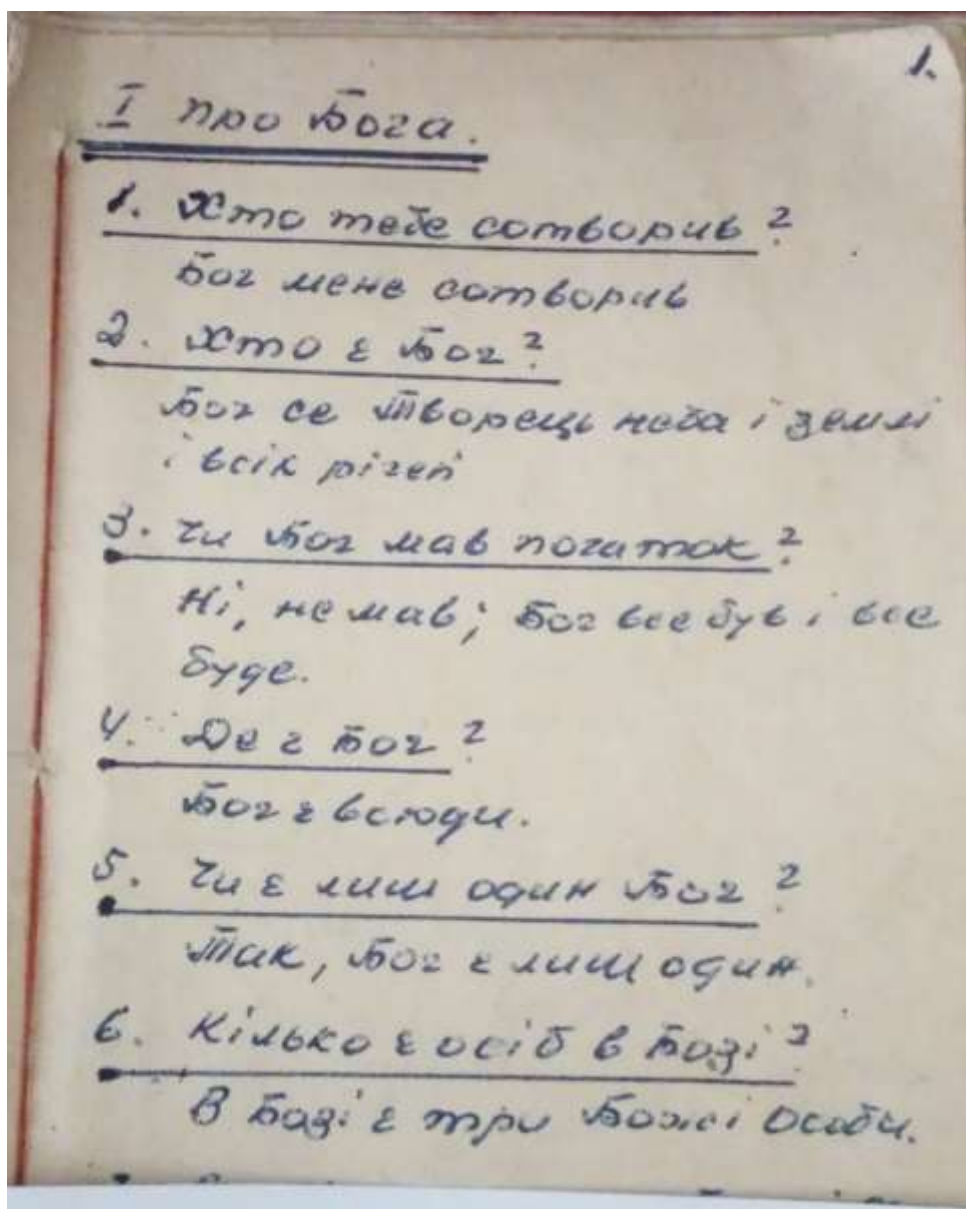 1.
I Про Бога.
1. Хто тебе сотворив?
Бог мене сотворив
2. Хто є Бог?
Бог се Творець неба і землі
і всіх річей
3. Чи Бог мав початок?
Ні, не мав; Бог все був і все
буде.
4. Де є Бог?
Бог є всюди.
5. Чи є лиш один Бог?
Так, Бог є лиш один.
6. Кілько є осіб в Бозі?
В Бозі є три Божі Особи.